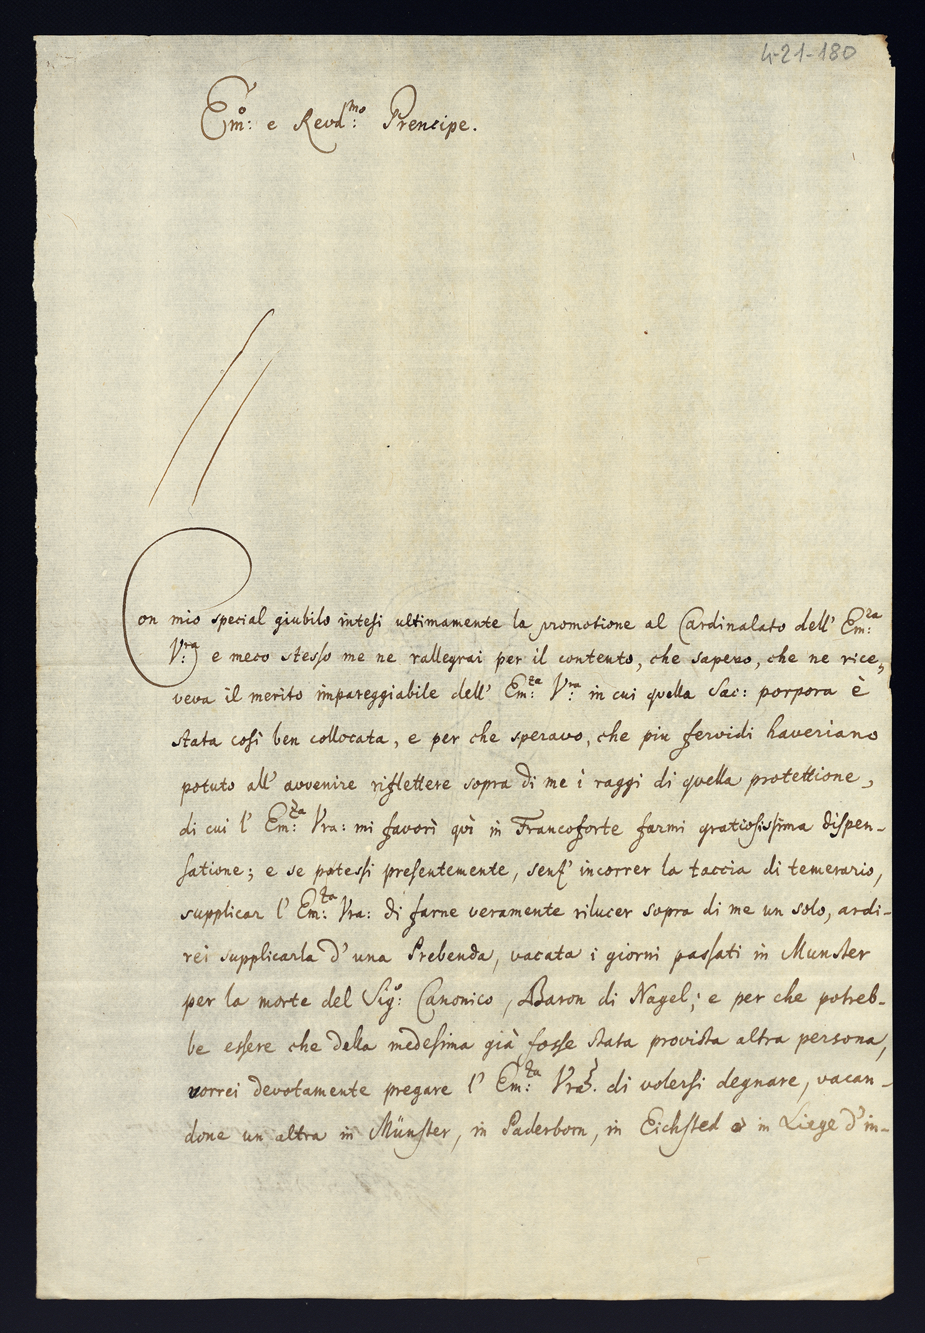 4-21-180
Em:o e Revd:mo Prencipe.
Con mio special giubilo intesi ultimamente la promotione al Cardinalato dell' Em:za
V:ra e meco stesso me ne rallegrai per il contento, che sapevo, che ne rice,
veva il merito impareggiabile dell' Em:za V:ra in cui quella Sac: porpora è
stata così ben collocata, e per che speravo, che più fervidi haveriano
potuto all' avvenire riflettere sopra di me i raggi di quella protettione,
di cui l' Em:za Vra: mi favorì qvì in Francoforte farmi gratiosissima dispen-
satione; e se potessi presentemente, senz' incorrer la taccia di temerario,
supplicar l' Em:za Vra: di farne veramente rilucer sopra di me un solo, ardi-
rei supplicarla d' una Prebenda, vacata i giorni passati in Munster
per la morte del Sig:o Canonico, Baron di Nagel; e per che potreb-
be essere che della medesima già fosse stata provista altra persona,
vorrei devotamente pregare l' Em:za Vra: di volersi degnare, vacan-
done un altra in Münster, in Paderborn, in Eichsted ò in Liege d' in-